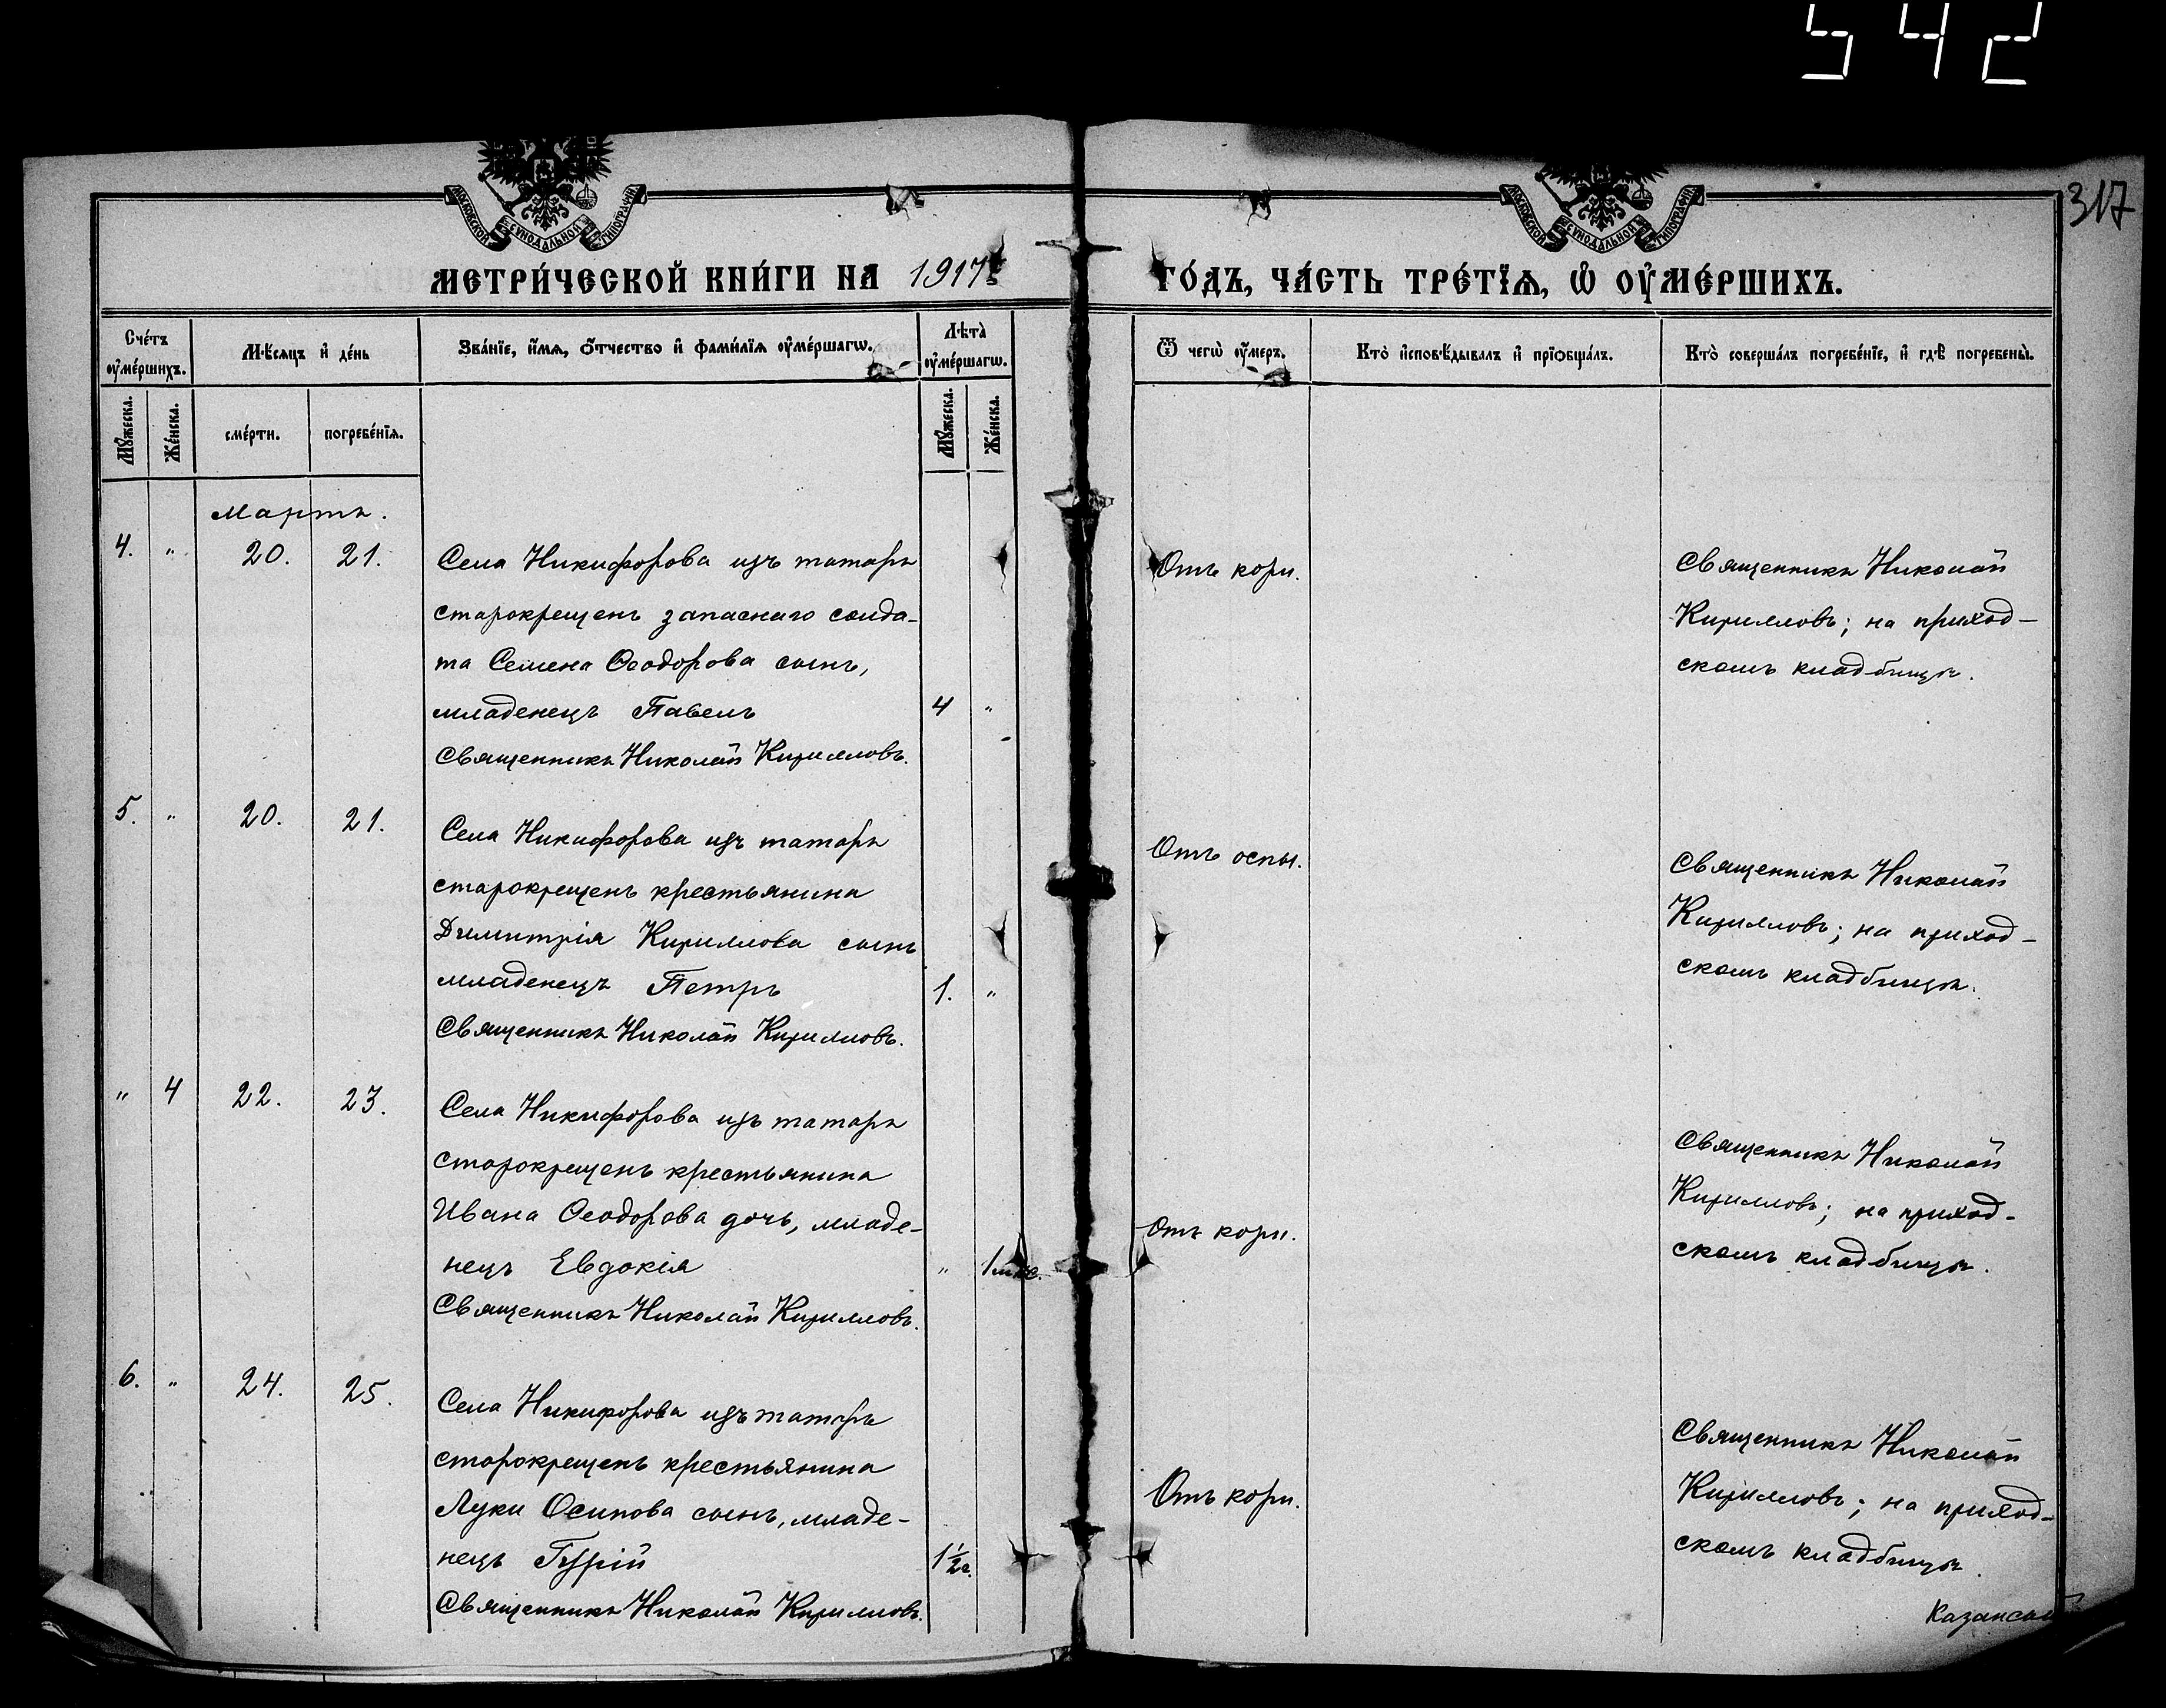 542
317
МОСКОВСКОЙ СУНОДАЛЬНОЙ ТИПОГРАФІИ
МОСКОВСКОЙ СУНОДАЛЬНОЙ ТИПОГРАФІИ
МЕТРИ́ЧЕСКОЙ КНИ́ГИ НА 1917
ГО́ДЪ, ЧА́СТЬ ТРЕ́ТЇѦ, Ѡ҆ ОУ҆МЕ́РШИХЪ.
Сче́тъ оу҆ме́ршихъ.
Мѣ́сяцъ и҆ де́нь
Зва́нїе, и҆́мѧ, ѻ҆́тчество и҆ фами́лїѧ оу҆ме́ршагѡ.
Лѣта̀ оу҆ме́ршагѡ.
Ѿ чегѡ̀ оу҆́меръ.
Кто̀ и҆сповѣ́дывалъ и҆ прїѡбща́лъ.
Кто̀ соверша́лъ погребе́нїе, и҆ гдѣ̀ погребены̀.
Мꙋ́жеска.
Же́нска.
сме́рти.
погребе́нїѧ.
Мꙋ́жеска.
Же́нска.
Мартъ.
4. " 20. 21.
Села Никифорова изъ татаръ
старокрещенъ запаснаго солда-
та Семена Ѳеодорова сынъ,
младенецъ Павелъ 4 "
Священникъ Николай Кирилловъ.
Отъ кори.
Священникъ Николай
Кирилловъ; на приход-
скомъ кладбищѣ.
5. " 20. 21.
Села Никифорова изъ татаръ
старокрещенъ крестьянина
Димитрія Кириллова сынъ
младенецъ Петръ 1. "
Священникъ Николай Кирилловъ.
Отъ оспы.
Священникъ Николай
Кирилловъ; на приход-
скомъ кладбищѣ.
" 4 22. 23.
Села Никифорова изъ татаръ
старокрещенъ крестьянина
Ивана Ѳеодорова дочь, младе-
нецъ Евдокія " 1
Священникъ Николай Кирилловъ.
Отъ кори.
Священникъ Николай
Кирилловъ; на приход-
скомъ кладбищѣ.
6. " 24. 25.
Села Никифорова изъ татаръ
старокрещенъ крестьянина
Луки Осипова сынъ, младе-
нецъ Гурій 1½г.
Священникъ Николай Кирилловъ.
Отъ кори.
Священникъ Николай
Кирилловъ; на приход-
скомъ кладбищѣ.